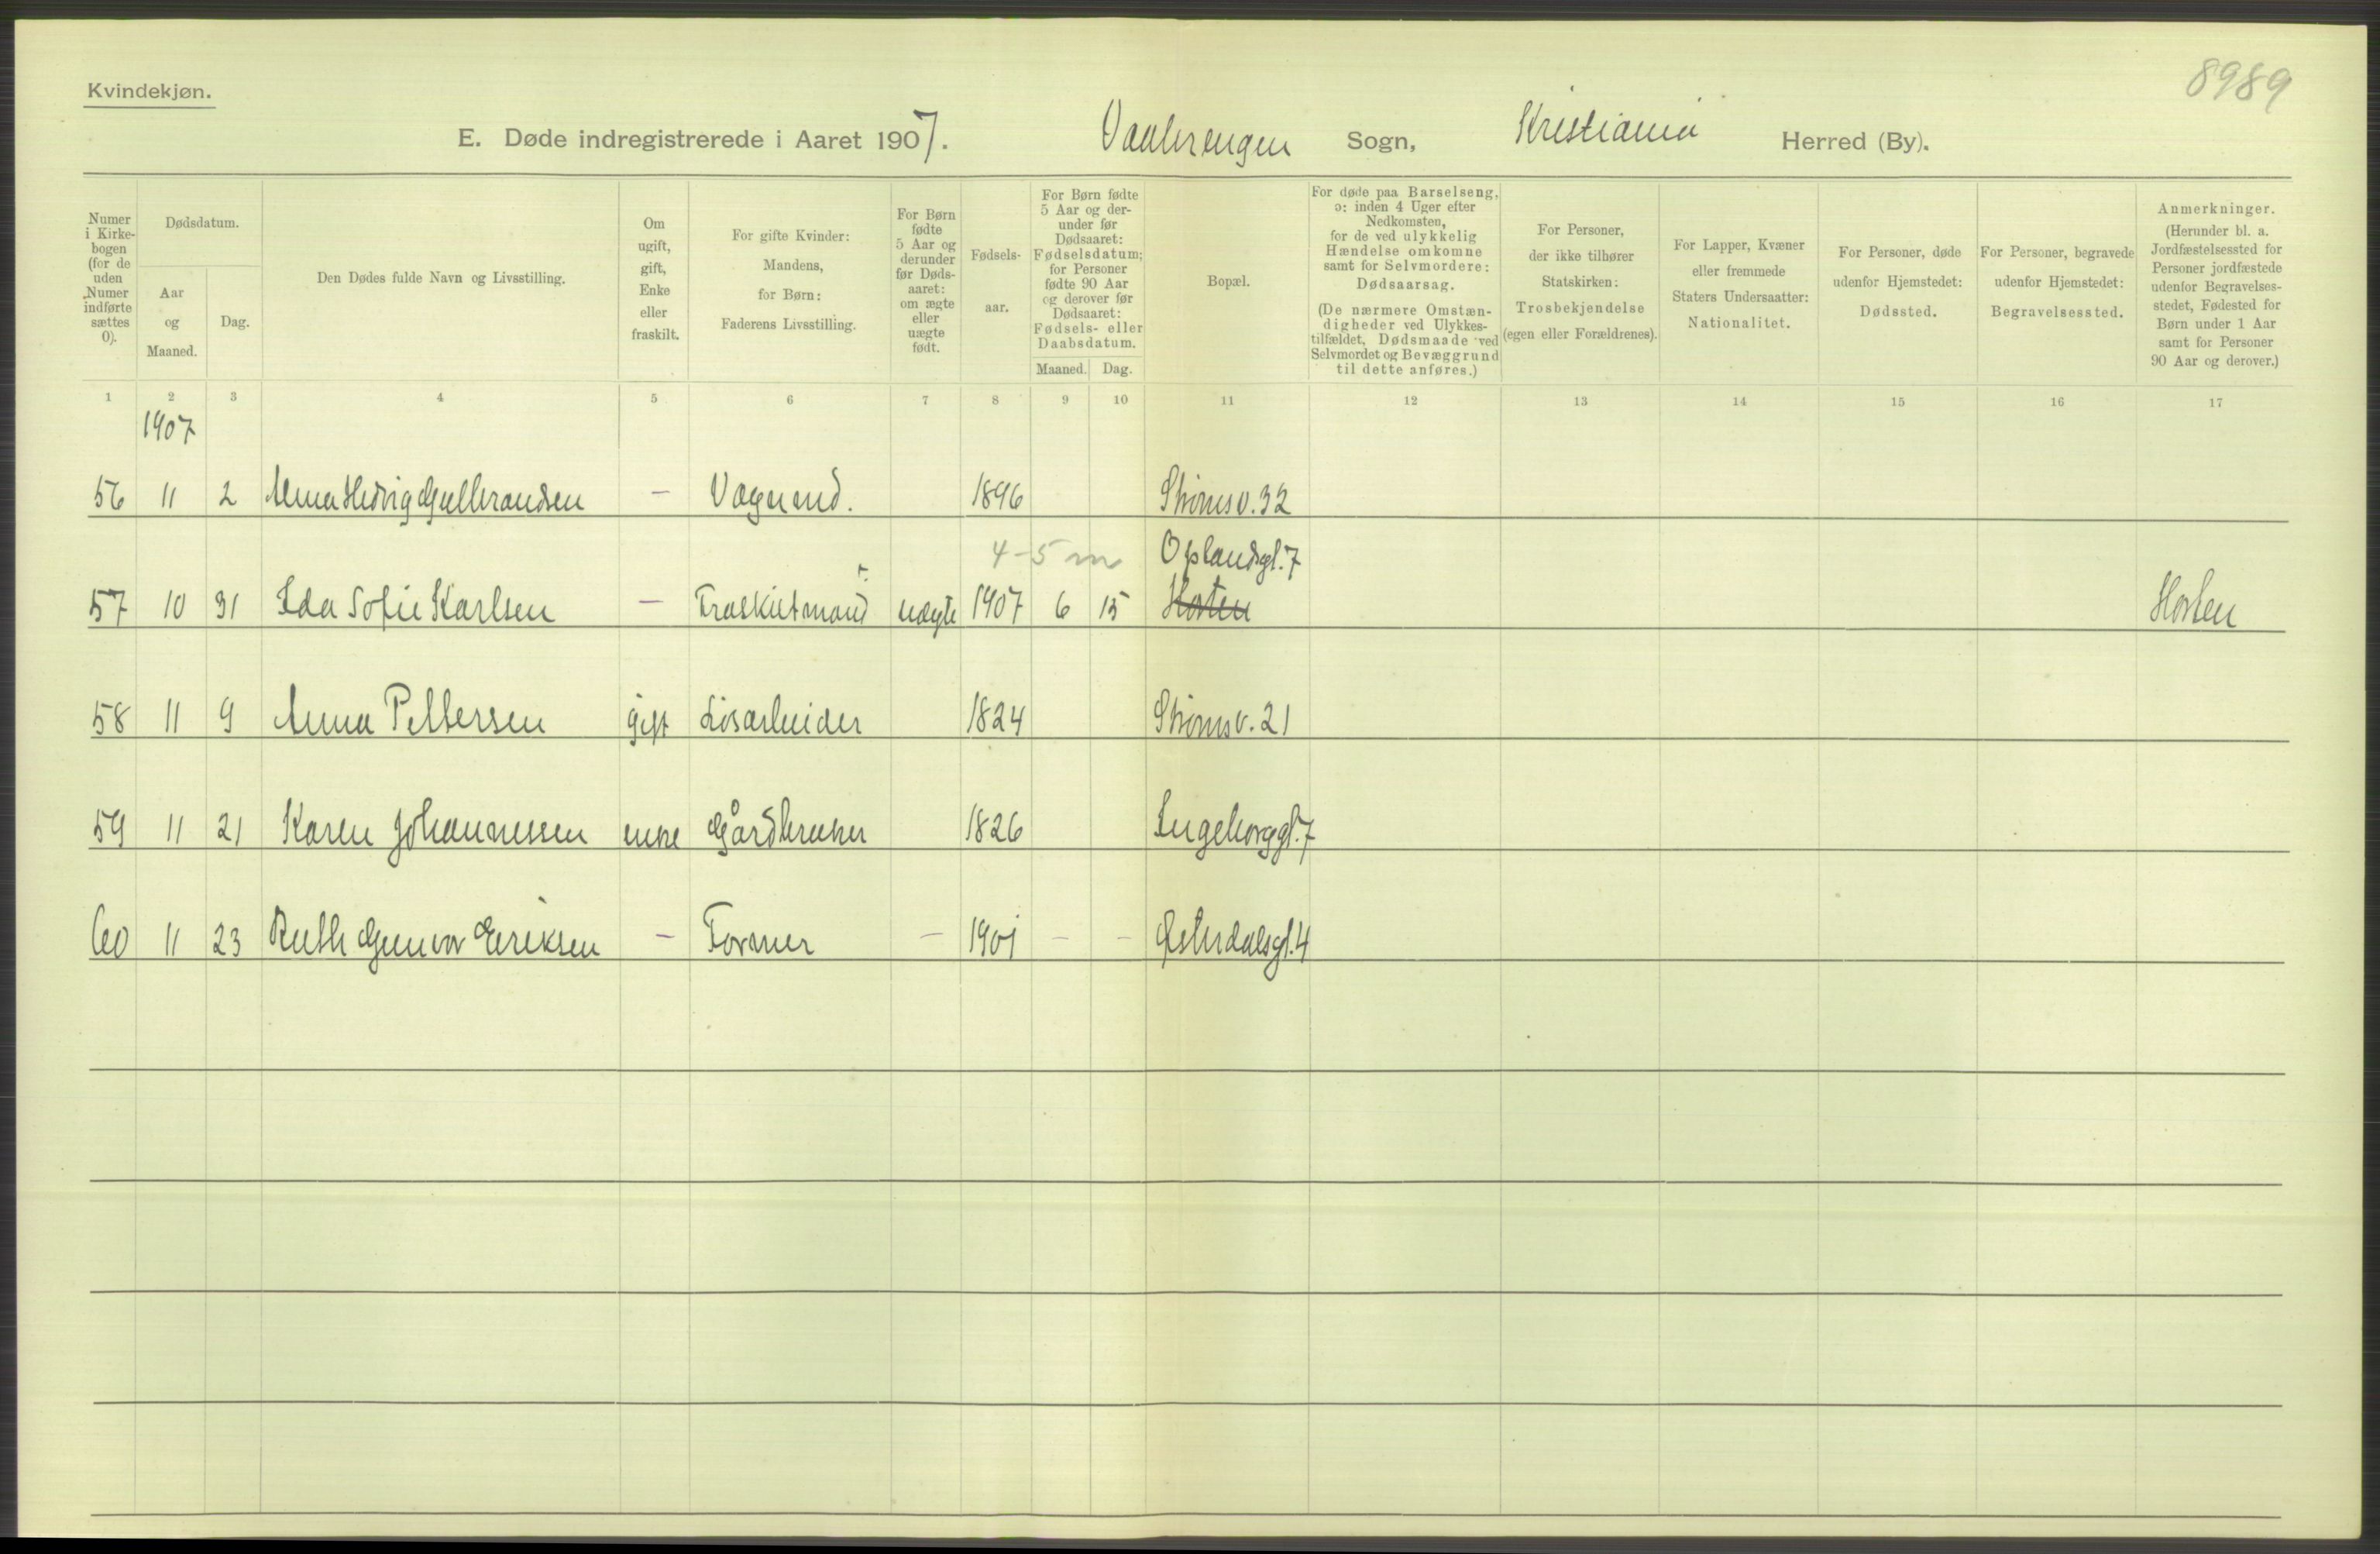 8989
Kvindekjøn.
E. Døde indregistrerede i Aaret 1907. Vaalerengen Sogn, Kristiania Herred (By).
Numer i Kirkebogen (for de uden Numer indførte sættes 0).
Dødsdatum.
Aar og Maaned.
Dag.
Den Dødes fulde Navn og Livsstilling.
Om ugift, gift, Enke eller fraskilt.
For gifte Kvinder: Mandens, for Børn: Faderens Livsstilling.
For Børn fødte 5 Aar og derunder før Dødsaaret: om ægte eller uægte født.
Fødselsaar.
For Børn fødte 5 Aar og derunder før Dødsaaret: Fødselsdatum; for Personer fødte 90 Aar og derover før Dødsaaret: Fødsels- eller Daabsdatum.
Maaned. Dag.
Bopæl.
For døde paa Barselseng, ɔ: inden 4 Uger efter Nedkomsten, for de ved ulykkelig Hændelse omkomne samt for Selvmordere: Dødsaarsag.
(De nærmere Omstændigheder ved Ulykkestilfældet, Dødsmaade ved Selvmordet og Bevæggrund til dette anføres.)
For Personer, der ikke tilhører Statskirken: Trosbekjendelse (egen eller Forældrenes).
For Lapper, Kvæner eller fremmede Staters Undersaatter: Nationalitet.
For Personer, døde udenfor Hjemstedet: Dødssted.
For Personer, begravede udenfor Hjemstedet: Begravelsessted.
Anmerkninger. (Herunder bl. a. Jordfæstelsessted for Personer jordfæstede udenfor Begravelsesstedet, Fødested for Børn under 1 Aar samt for Personer 90 Aar og derover.)
1 2 3 4 5 6 7 8 9 10 11 12 13 14 15 16 17
1907
56 11 2 Anna Hedvig Gulbrandsen - Vognmd. 1896 Strømsv. 32
4-5 m Oplandsgt. 7
57 10 31 Ida Sofie Karlsen - Fraskilt mand uægte 1907 6 15 Horten Horten
58 11 9 Anna Pettersen gift Løsarbeider 1824 Strømsv. 21
59 11 21 Karen Johannessen enke Gårdbruker 1826 Ingeborggt. 7
60 11 23 Ruth Gunvor Eriksen - Former - 1901 - - Østerdalsgt. 4